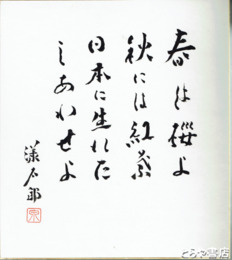 春は桜よ
秋には紅葉
日本に生れた
しあわせよ
とらや書店